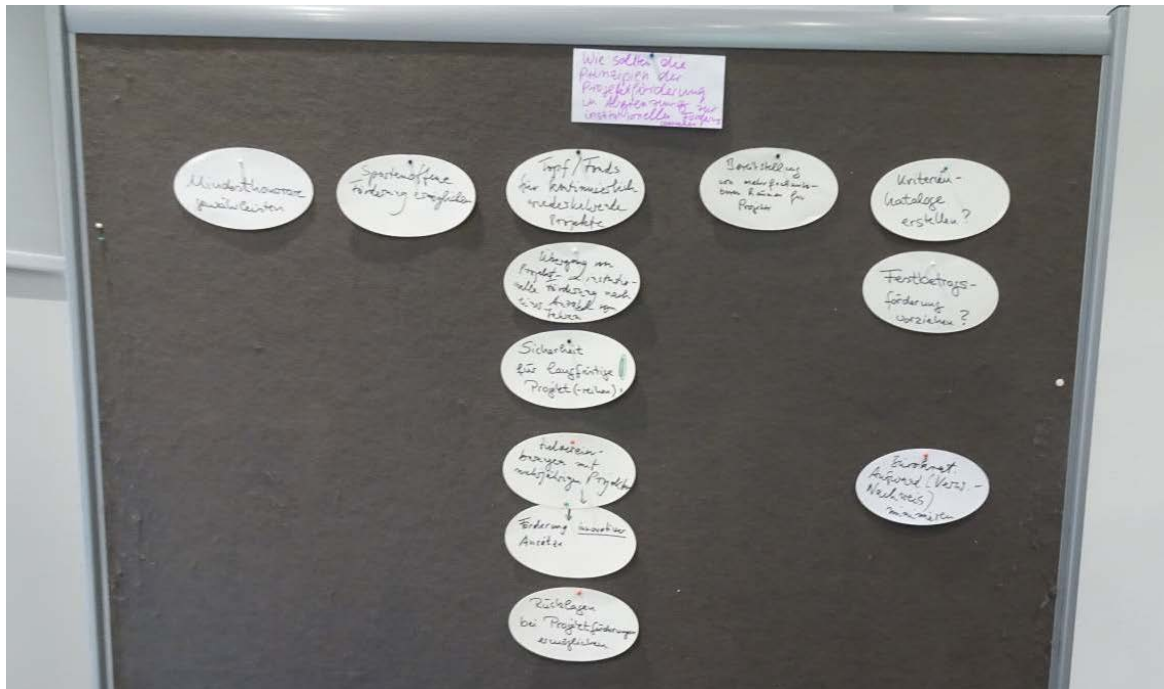 Wie sollten die
Prinzipien der
Projektförderung
in Abgrenzung zur
institutionellen Förderung
Mindesthonorare
gewährleisten
Spartenoffene
Förderung ermöglichen
Topf / Fonds
für kontinuierlich
wiederkehrende
Projekte
Übergang von
Projekt- in institutio-
nelle Förderung nach
einer Anzahl von
Jahren
Sicherheit
für langfristige
Projekt(-reihen)
vereinbarungen mit
mehrjährigen Projekten
Förderung innovativer
Ansätze
Rücklagen
bei Projektförderungen
ermöglichen
Bereitstellung
von mehrfach nutz-
baren Räumen für
Projekte
Kriterien-
kataloge
erstellen?
Festbetrags-
förderung
vorziehen?
Bürokrat.
Aufwand (Verw.-
Nachweis)
minimieren